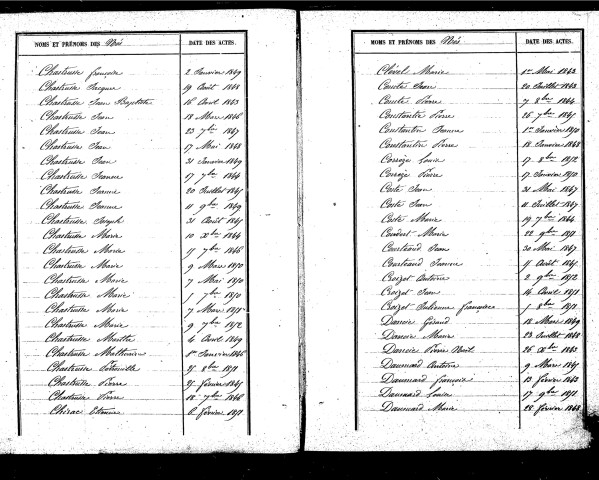 NOMS ET PRÉNOMS DES Nés DATE DES ACTES.
Chastrusse françoise 2 Janvier 1869
Chastrusse Jacques 19 Août 1868
Chastrusse Jean Baptiste 16 Avril 1863
Chastrusse Jean 18 Mars 1866
Chastrusse Jean 23 7bre 1867
Chastrusse Jean 17 Mai 1868
Chastrusse Jean 31 Janvier 1869
Chastrusse Jeanne 17 7bre 1864
Chastrusse Jeanne 20 Juillet 1865
Chastrusse Jeanne 11 9bre 1869
Chastrusse Joseph 31 Août 1865
Chastrusse Marie 10 Xbre 1864
Chastrusse Marie 11 7bre 1866
Chastrusse Marie 9 Mars 1870
Chastrusse Marie 7 Mai 1870
Chastrusse Marie 7bre 1870
Chastrusse Marie 7 Mars 1871
Chastrusse Marie 9 7bre 1872
Chastrusse 4 Avril 1869
Chastrusse Mathurin 1er Janvier 1866
Chastrusse 8bre 1871
Chastrusse Pierre février 1865
Chastrusse Pierre 18 7bre 1866
Chirac Etienne 6 février 1871
NOMS ET PRÉNOMS DES Nés DATE DES ACTES.
Clavel Marie 1er Mai 1863
Comte Jean 20 Juillet 1863
Comte Pierre 7 8bre 1864
Constantin Pierre 26 7bre 1865
Constantin Jeanne 1er Janvier 1870
Constantin Pierre 18 Janvier 1868
Corrèze Louis 17 8bre 1872
Corrèze Pierre 17 Janvier 1870
Coste Jean 31 Mai 1867
Coste Jean 11 Juillet 1867
Coste Marie 19 7bre 1864
Coudert Marie 22 9bre 1871
Courteaud Jean 30 Mai 1867
Courteaud Jeanne 11 Août 1865
Croizet Antoine 2 9bre 1872
Croizet Jean 14 Avril 1871
Croizet Julienne françoise 8bre 1871
Dansie Géraud 18 Mars 1869
Dansie Marie 23 Juillet 1868
Dansie Pierre Noël 26 Xbre 1863
Daumard Antoine 9 Mars 1865
Daumard françois 13 février 1863
Daumard Louise 17 9bre 1871
Daumard Marie 28 février 1868